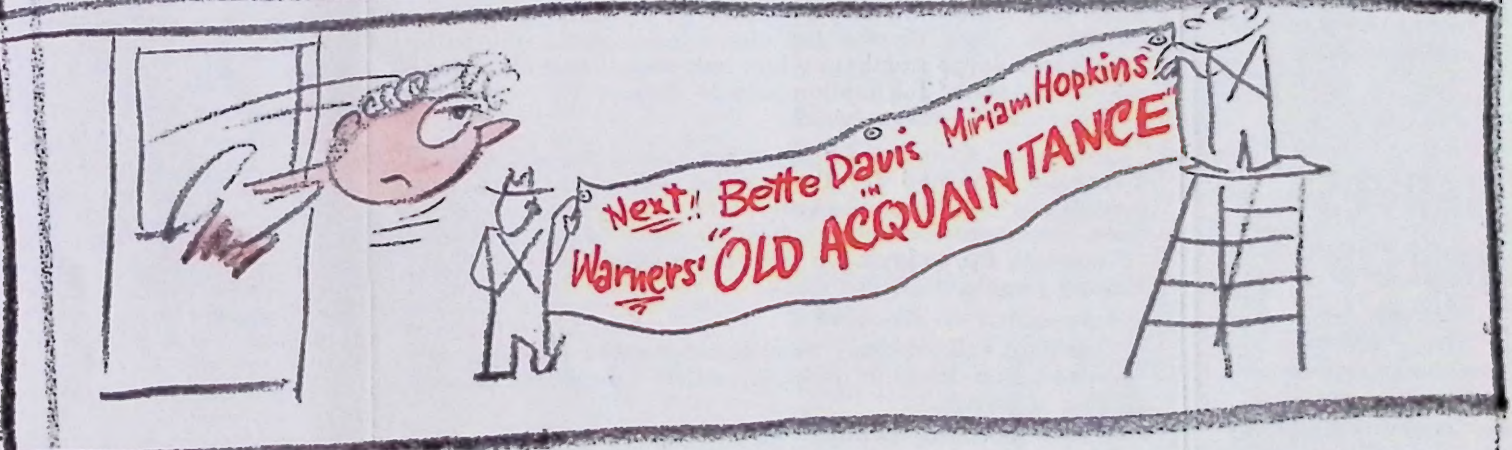 Next!! Bette Davis Miriam Hopkins
Warners' "OLD ACQUAINTANCE"